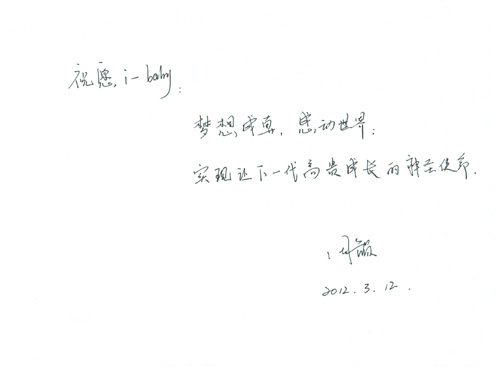 祝愿 i-baby:
梦想成真，感动世界；
实现让下一代高贵成长的神圣使命.
2012.3.12.